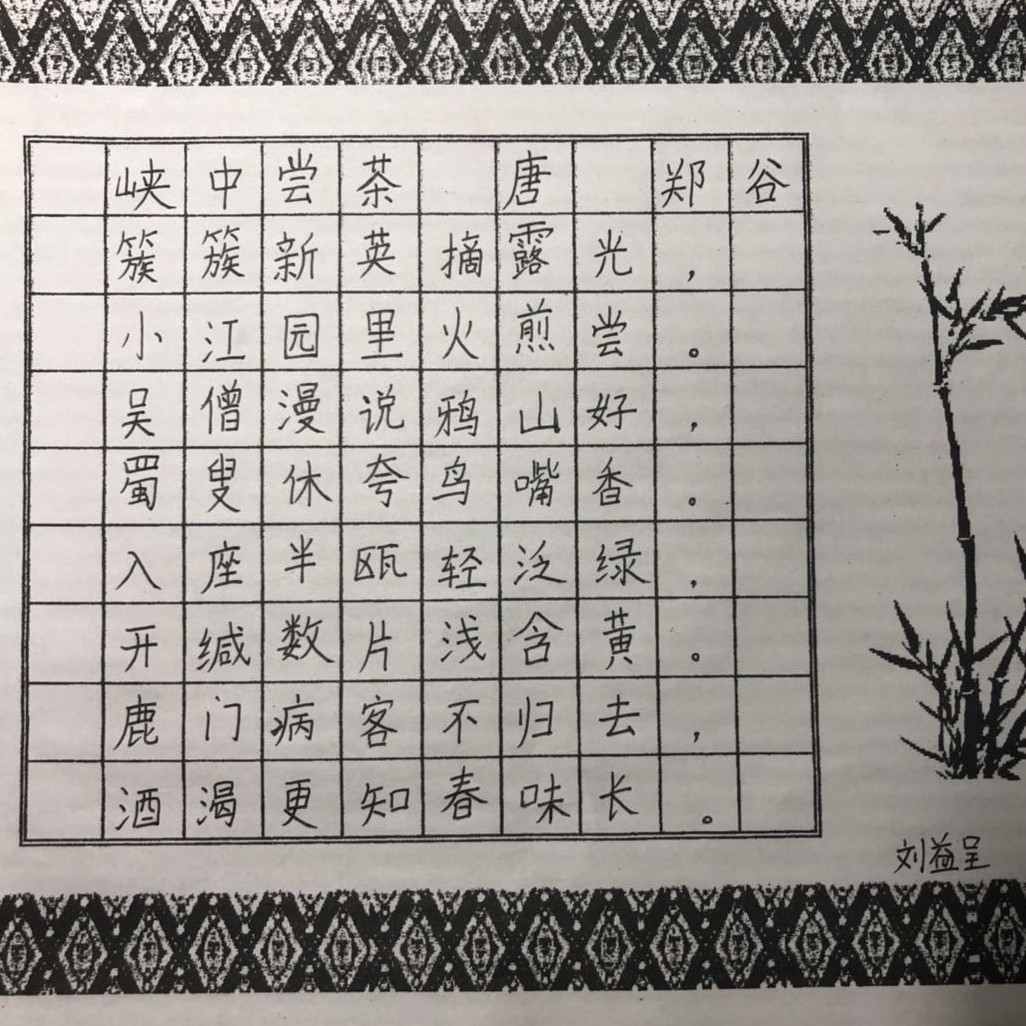 峡中尝茶 唐 郑谷
簇簇新英摘露光，
小江园里火煎尝。
吴僧漫说鸦山好，
蜀叟休夸鸟嘴香。
入座半瓯轻泛绿，
开缄数片浅含黄。
鹿门病客不归去，
酒渴更知春味长。
刘益呈